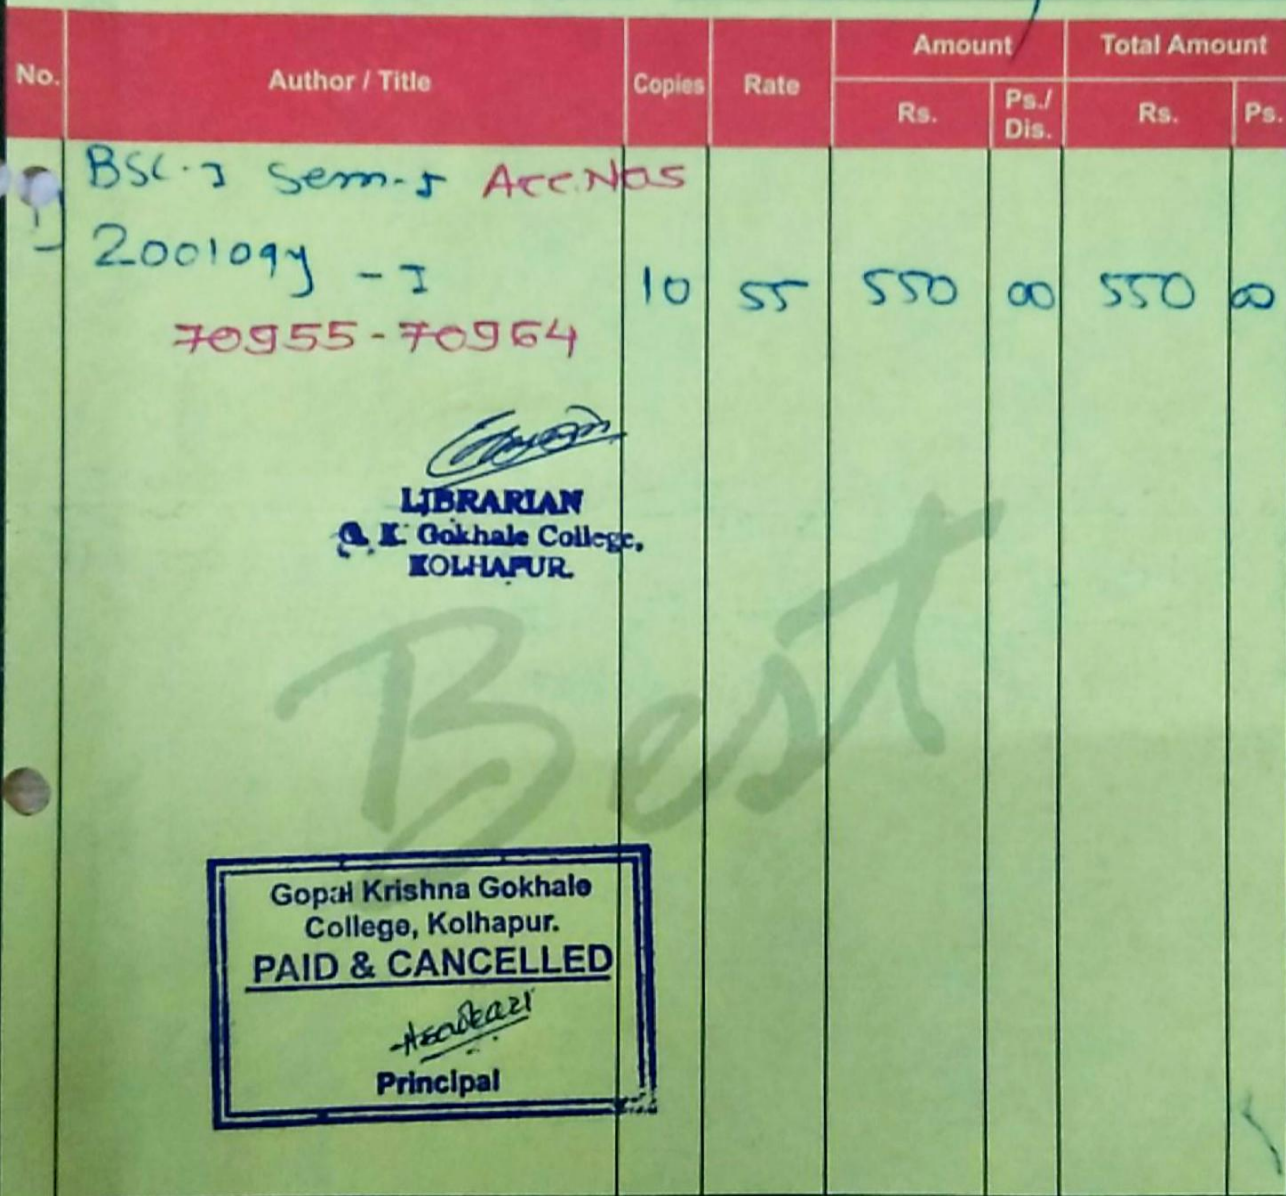 No. Author / Title Copies Rate Amount Total Amount
Rs. Ps./ Dis. Rs. Ps.
BSC-I Sem-I Acc.Nos
1 Zoology - I 10 55 550 00 550 00
70955-70964
LIBRARIAN
G. K. Gokhale College,
KOLHAPUR.
Best
Gopal Krishna Gokhale
College, Kolhapur.
PAID & CANCELLED
Principal